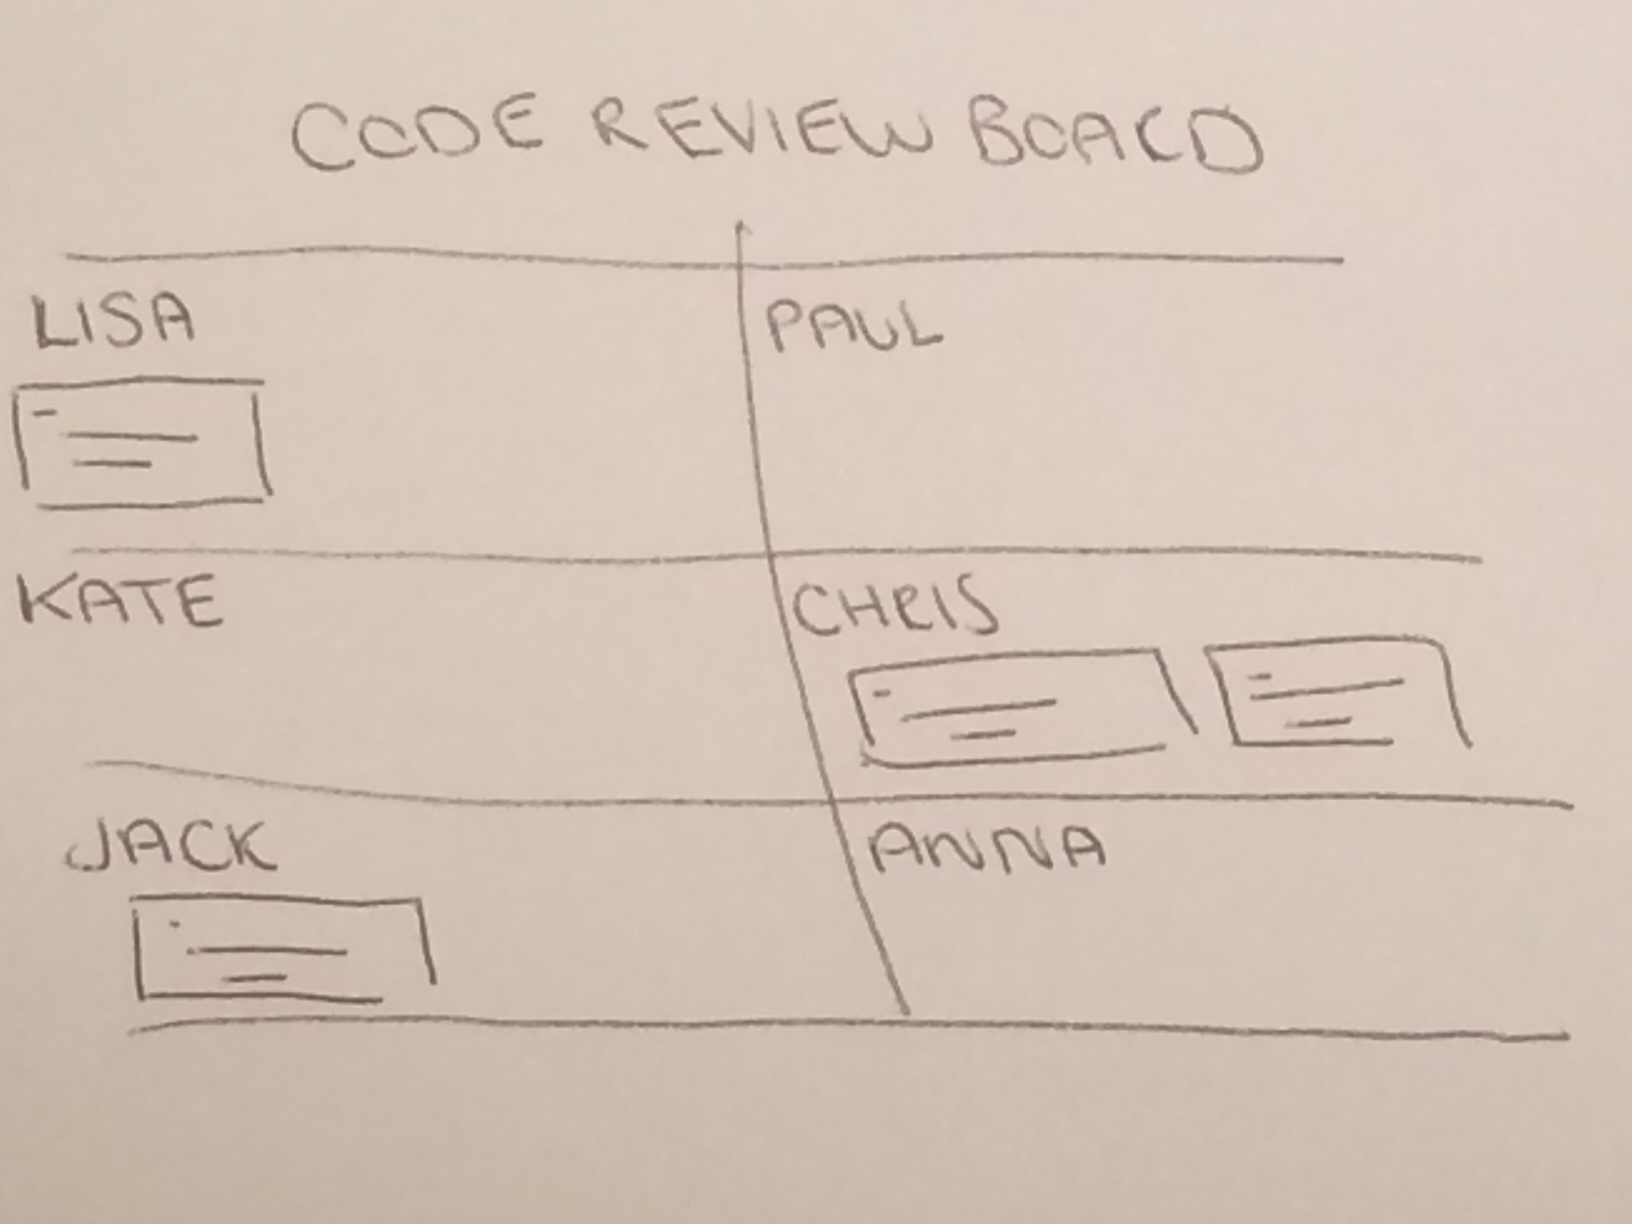 CODE REVIEW BOARD
LISA
PAUL
KATE
CHRIS
JACK
ANNA